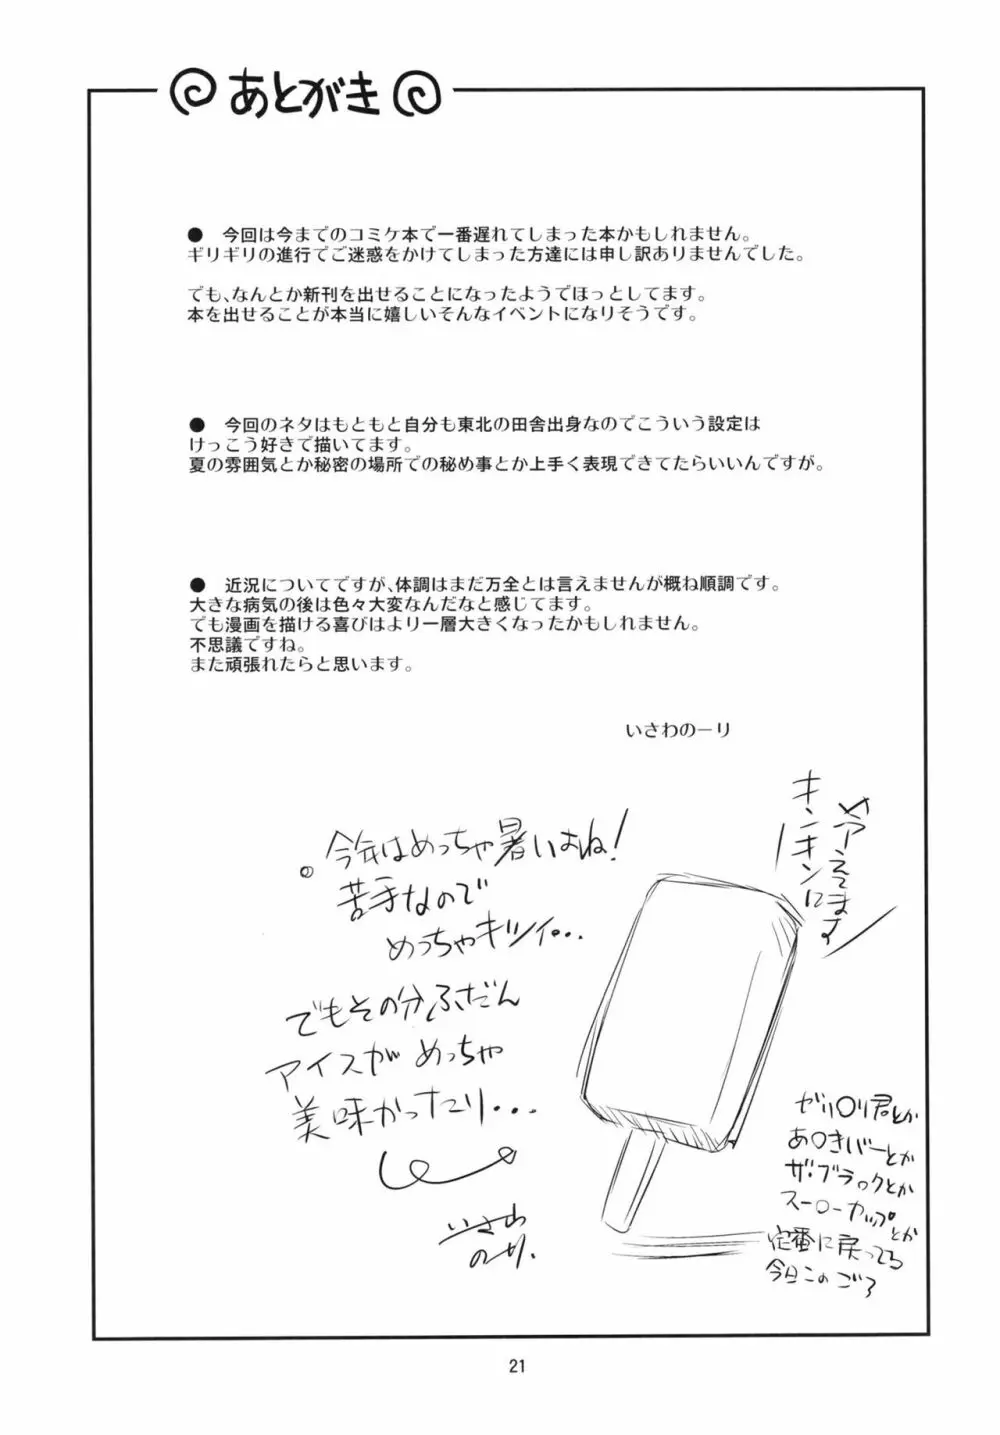 あとがき
● 今回は今までのコミケ本で一番遅れてしまった本かもしれません。
ギリギリの進行でご迷惑をかけてしまった方達には申し訳ありませんでした。
でも、なんとか新刊を出せることになったようでほっとしてます。
本を出せることが本当に嬉しいそんなイベントになりそうです。
● 今回のネタはもともと自分も東北の田舎出身なのでこういう設定は
けっこう好きで描いてます。
夏の雰囲気とか秘密の場所での秘め事とか上手く表現できてたらいいんですが。
● 近況についてですが、体調はまだ万全とは言えませんが概ね順調です。
大きな病気の後は色々大変なんだなと感じてます。
でも漫画を描ける喜びはより一層大きくなったかもしれません。
不思議ですね。
また頑張れたらと思います。
いさわのーり
今年はめっちゃ暑いよね!
苦手なので
めっちゃキツイ・・・
でもその分ふだん
アイスが めっちゃ
美味かったり・・・
いさわ
のーり.
キンキンに
ひえてます
ガリ〇リ君とか
あ〇きバーとか
ザ・ブラックとか
スー〇ーカップとか
定番に戻ってる
今日このごろ
21